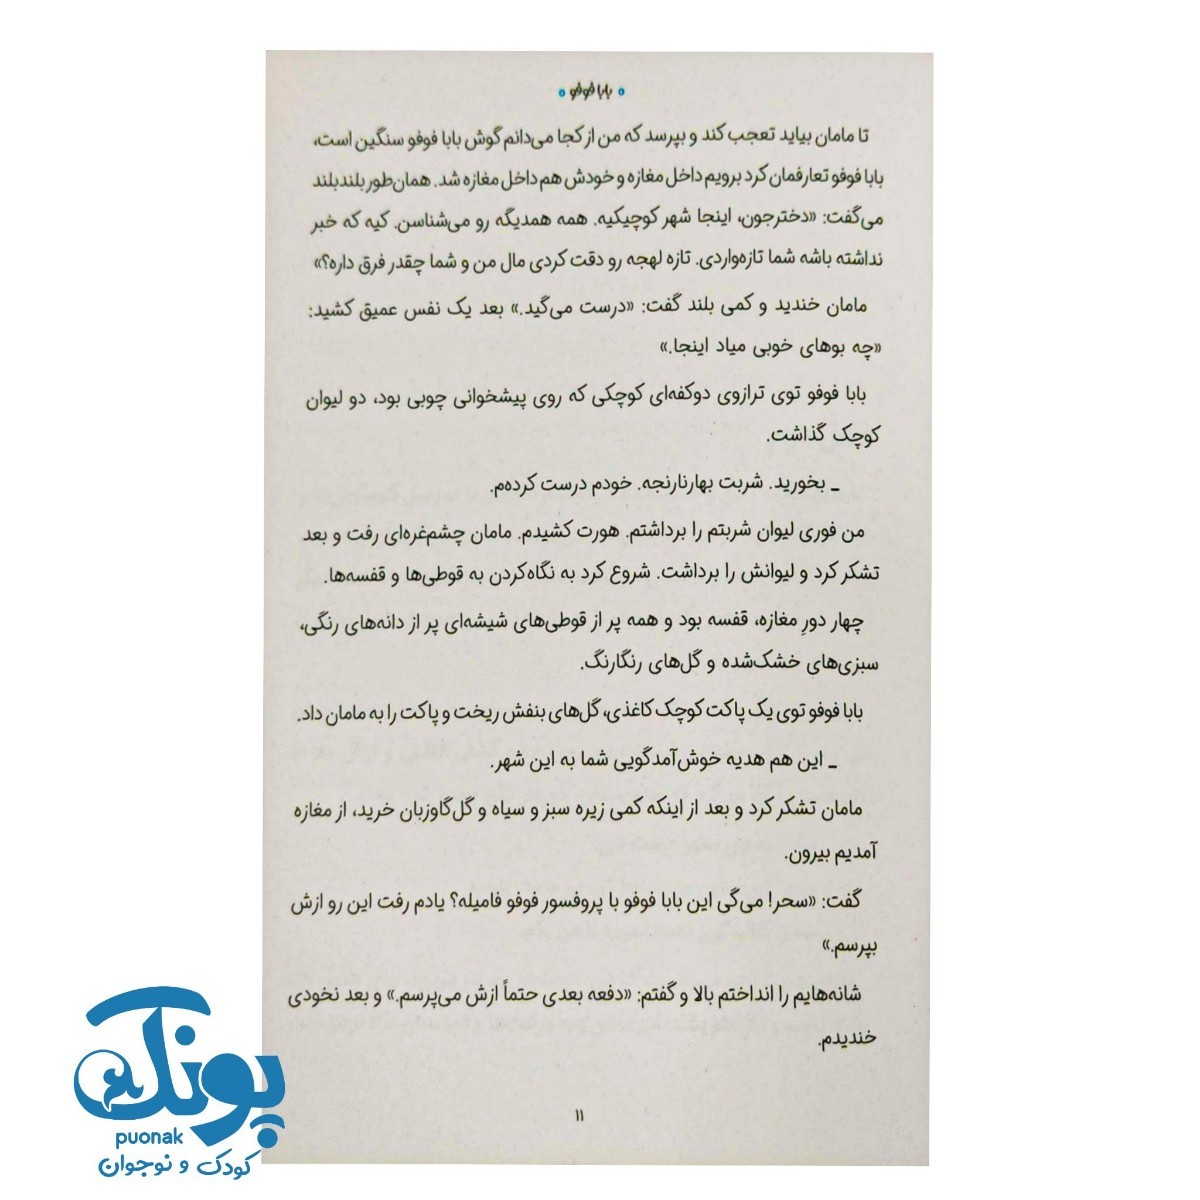 بابا فوفو
تا مامان بیاید تعجب کند و بپرسد که من از کجا می‌دانم گوش بابا فوفو سنگین است،
بابا فوفو تعارفمان کرد برویم داخل مغازه و خودش هم داخل مغازه شد. همان‌طور بلندبلند
می‌گفت: «دخترجون، اینجا شهر کوچیکیه. همه همدیگه رو می‌شناسن. کیه که خبر
نداشته باشه شما تازه‌واردی. تازه لهجه رو دقت کردی مال من و شما چقدر فرق داره؟»
مامان خندید و کمی بلند گفت: «درست می‌گید.» بعد یک نفس عمیق کشید:
«چه بوهای خوبی میاد اینجا.»
بابا فوفو توی ترازوی دوکفه‌ای کوچکی که روی پیشخوانی چوبی بود، دو لیوان
کوچک گذاشت.
ـ بخورید. شربت بهارنارنجه. خودم درست کرده‌م.
من فوری لیوان شربتم را برداشتم. هورت کشیدم. مامان چشم‌غره‌ای رفت و بعد
تشکر کرد و لیوانش را برداشت. شروع کرد به نگاه‌کردن به قوطی‌ها و قفسه‌ها.
چهار دورِ مغازه، قفسه بود و همه پر از قوطی‌های شیشه‌ای پر از دانه‌های رنگی،
سبزی‌های خشک‌شده و گل‌های رنگارنگ.
بابا فوفو توی یک پاکت کوچک کاغذی، گل‌های بنفش ریخت و پاکت را به مامان داد.
ـ این هم هدیه خوش‌آمدگویی شما به این شهر.
مامان تشکر کرد و بعد از اینکه کمی زیره سبز و سیاه و گل‌گاوزبان خرید، از مغازه
آمدیم بیرون.
گفت: «سحر! می‌گی این بابا فوفو با پروفسور فوفو فامیله؟ یادم رفت این رو ازش
بپرسم.»
شانه‌هایم را انداختم بالا و گفتم: «دفعه بعدی حتماً ازش می‌پرسم.» و بعد نخودی
خندیدم.
۱۱
پونک
puonak
کودک و نوجوان